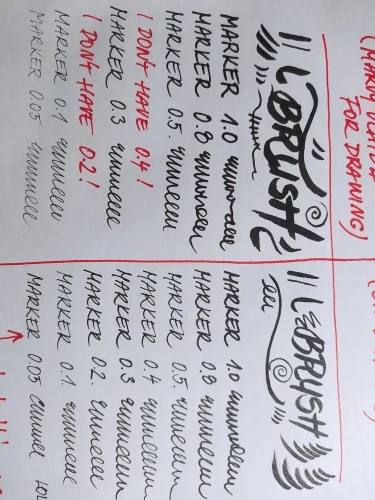 FOR DRAWING)
BRUSH
MARKER 1.0
MARKER 0.8
MARKER 0.5.
I DON'T HAVE 0.4!
MARKER 0.3
I DON'T HAVE 0.2!
MARKER 0.1
MARKER 0.05
BRUSH
MARKER 1.0
MARKER 0.8
MARKER 0.5.
MARKER 0.4
MARKER 0.3
MARKER 0.2.
MARKER 0.1
MARKER 0.05 LOL